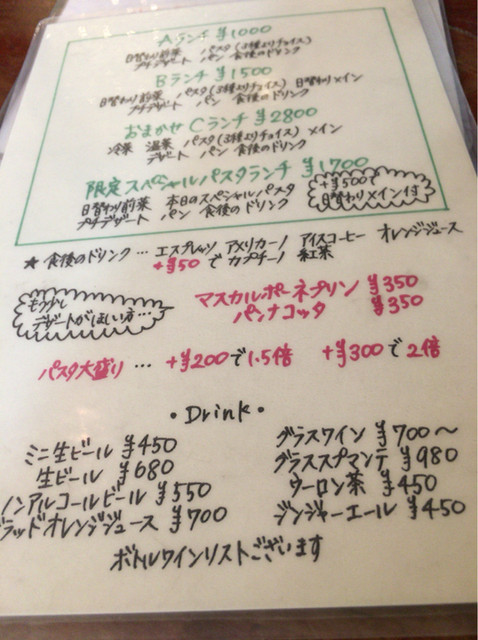 Aランチ ¥1000
日替わり前菜 パスタ(3種よりチョイス)
プチデザート パン 食後のドリンク
Bランチ ¥1500
日替わり前菜 パスタ(3種よりチョイス) 日替わりメイン
プチデザート パン 食後のドリンク
おまかせCランチ ¥2800
冷菜 温菜 パスタ(3種よりチョイス) メイン
デザート パン 食後のドリンク
限定スペシャルパスタランチ ¥1700
日替わり前菜 本日のスペシャルパスタ
プチデザート パン 食後のドリンク
+¥500で
日替わりメイン付
★ 食後のドリンク… エスプレッソ アメリカーノ アイスコーヒー オレンジジュース
+¥50で カプチーノ 紅茶
もう少し
デザートがほしい方…
マスカルポーネプリン ¥350
パンナコッタ ¥350
パスタ大盛り … +¥200で1.5倍 +¥300で2倍
・Drink・
ミニ生ビール ¥450
生ビール ¥680
ノンアルコールビール ¥550
ブラッドオレンジジュース ¥700
グラスワイン ¥700〜
グラススプマンテ ¥980
ウーロン茶 ¥450
ジンジャーエール ¥450
ボトルワインリストございます